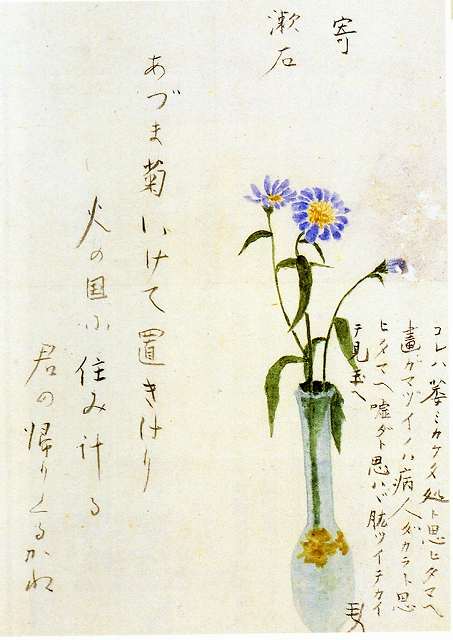 寄
漱石
コレハ萎ミカケタ処ト思ヒタマヘ
畫ガマヅイノハ病人ダカラト思
ヒタマヘ嘘ダト思ハヾ肱ツイテカイ
テ見玉ヘ
あづま菊いけて置きけり
火の国に住みける
君の帰りくるかね